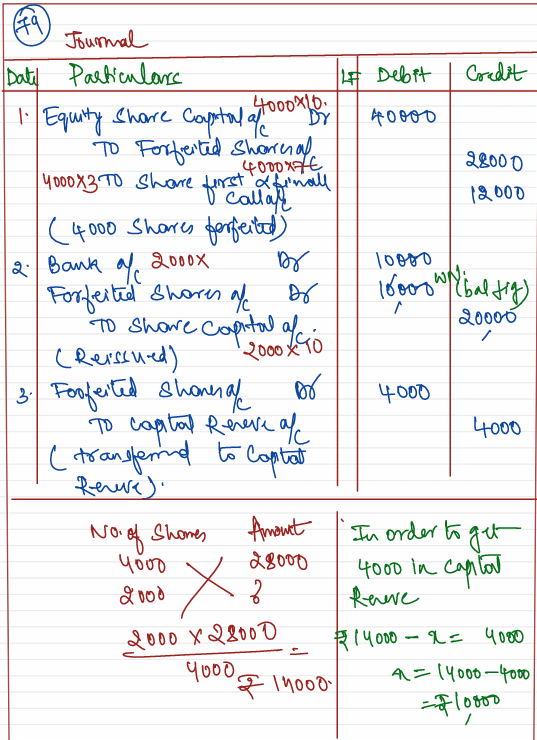 79
Journal
Date Particulars LF Debit Credit
1. Equity Share Capital a/c 4000×10. Dr 40000
TO Forfeited Shares a/c 28000
4000×7
4000×3 TO Share first & finall Call a/c 12000
(4000 Shares forfeited)
2. Bank a/c 2000× Dr 10000
Forfeited Shares a/c Dr 10000 WN. (bal fig)
TO Share Capital a/c. 20000
(Reissued) 2000×10
3. Forfeited Shares a/c Dr 4000
TO Capital Reserve a/c 4000
(transferred to Capital
Reserve).
No. of Shares Amount
4000 28000
2000 ?
2000 × 28000
4000
=
₹ 14000.
In order to get
4000 in capital
Reserve
₹14000 - x = 4000
x = 14000-4000
=₹10000